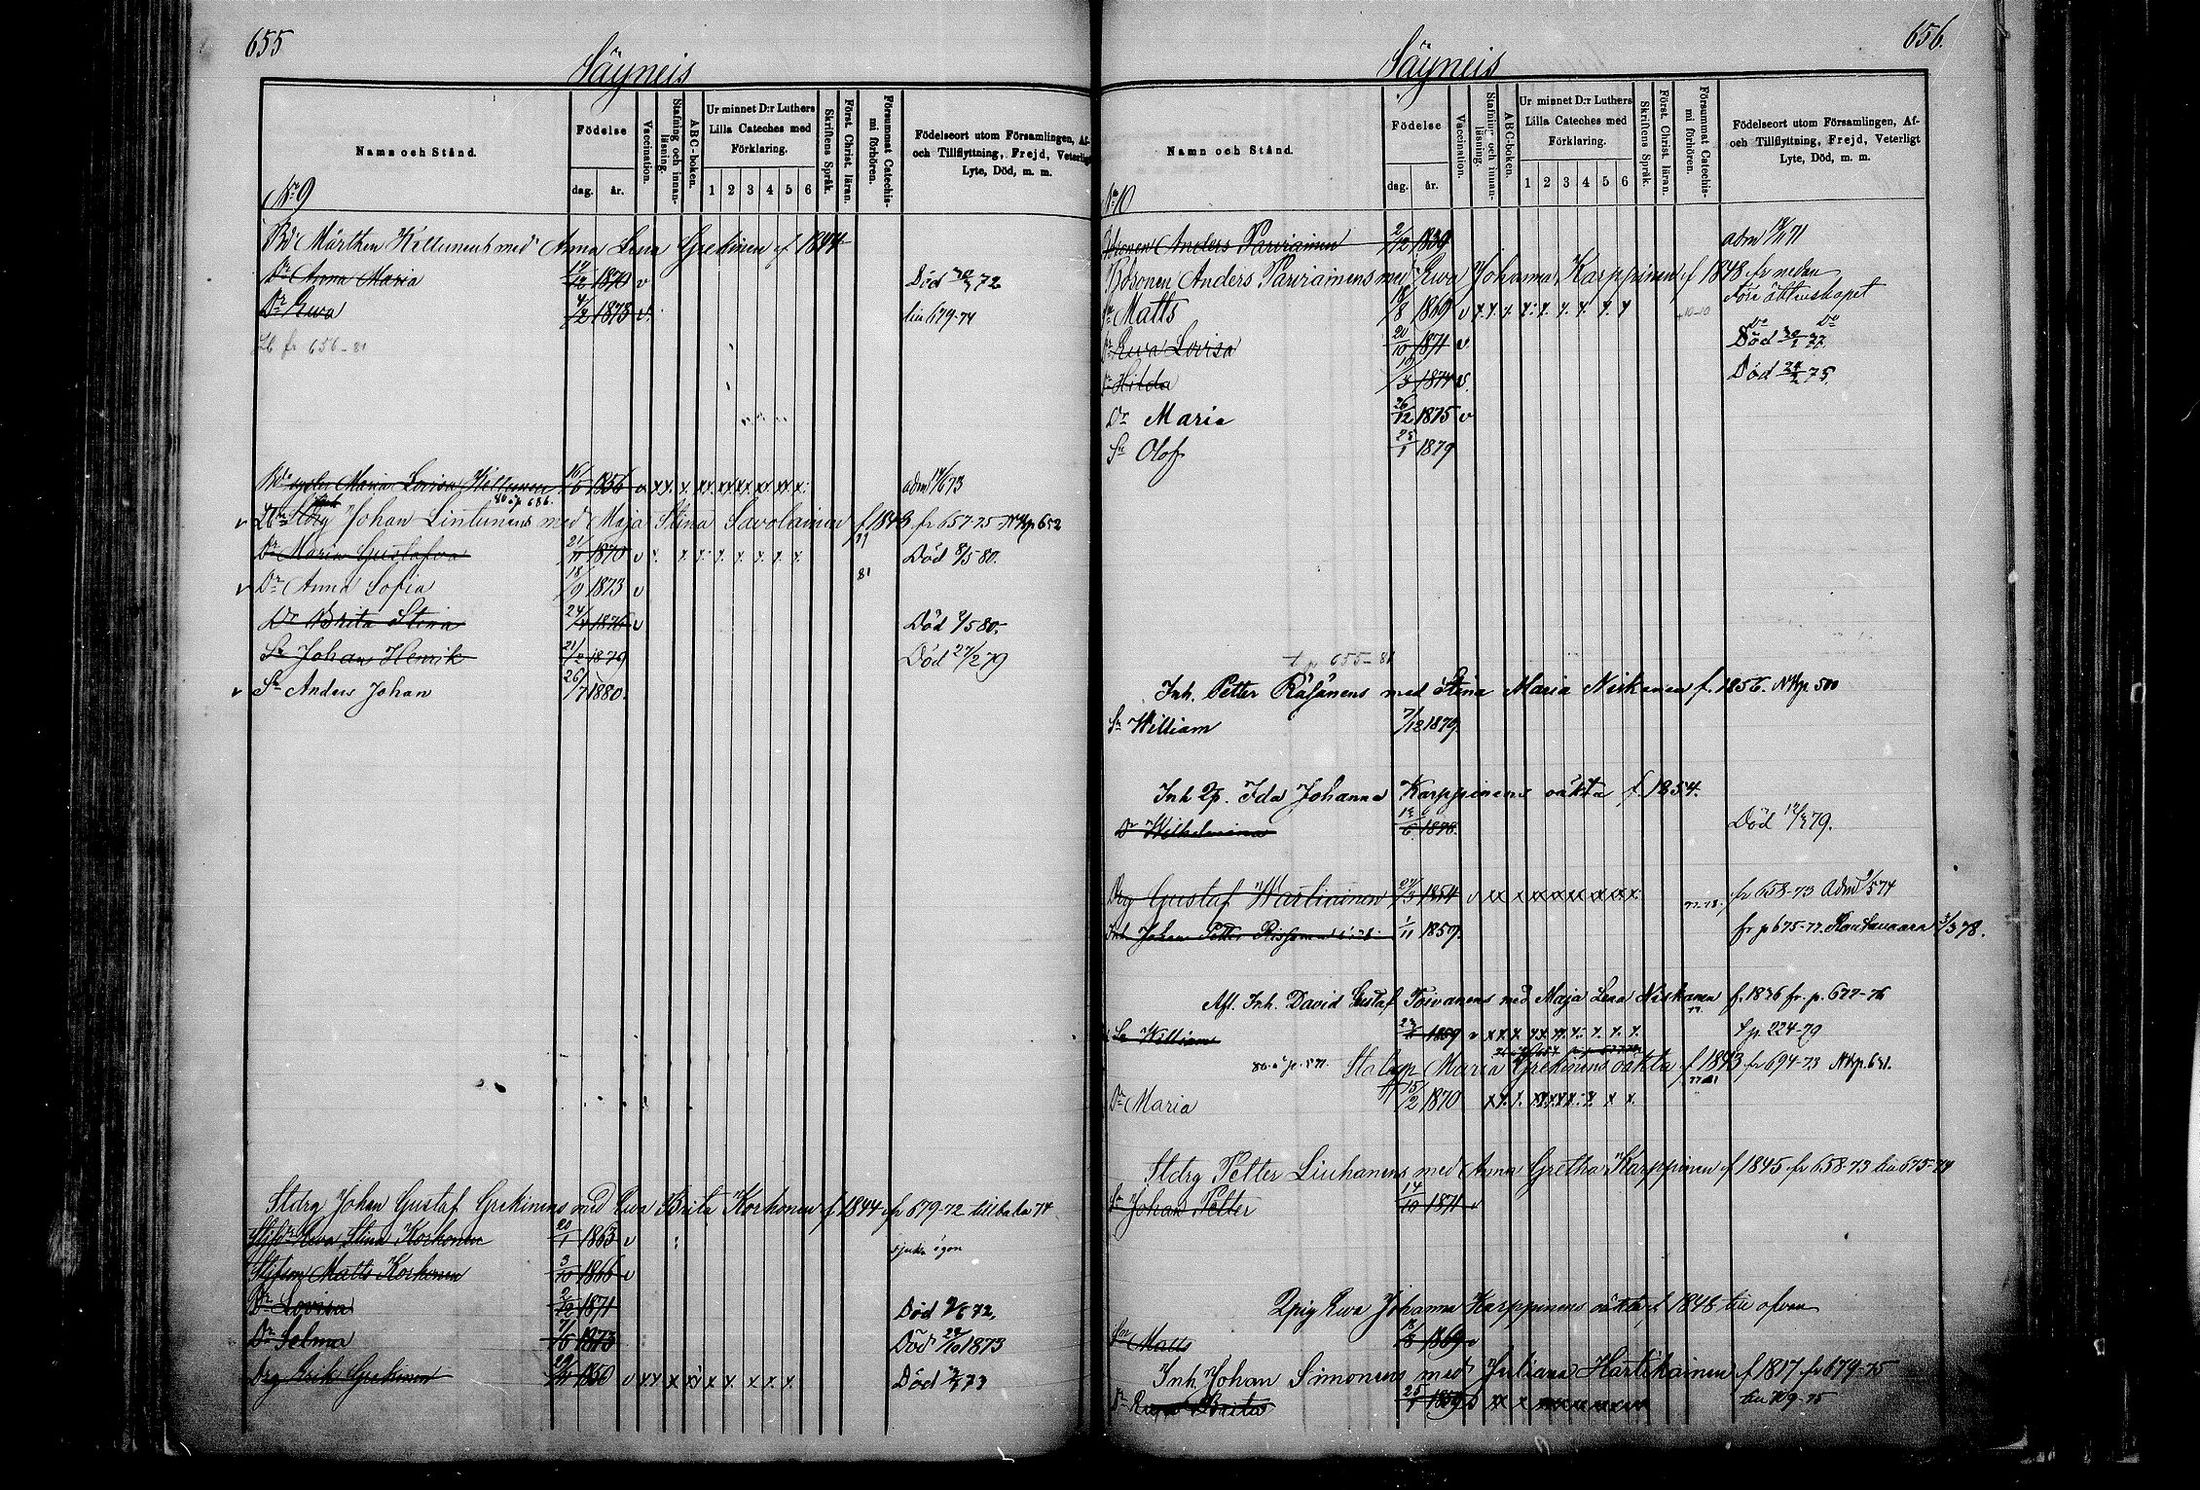 655
Säyneis
Namn och Stånd.
Födelse
dag.
år.
Vaccination.
Stafning och innan-
läsning.
ABC-boken.
Ur minnet D:r Luthers
Lilla Cateches med
Förklaring.
1 2 3 4 5 6
Skriftens Språk.
Först. Christ. läran.
Försummat Catechis-
mi förhören.
Födelseort utom Församlingen, Af-
och Tillflyttning, Frejd, Veterligt
Lyte, Död, m. m.
No 9
Bd Mårthen Kettunens med Anna Lena Grekinen f 1844
Dr Anna Maria 1870 v Död 72
Dr Ewa 4/2 1873 v. liu 679-74
fr 656-81
Maria Lovisa Kettunen 16/5 1856 v x x. x. xx. xx xx xx xx x. adm 73
80 p 686.
v Johan Lintunens med Maja Stina Savolainen f 1843 fr 657-75 NKp 652
Dr Maria Gustafva 21/11 1870 v x. x x x x x x x Död 8/5 80.
v Dr Anna Sofia 18/9 1873 v 81
Dr Brita Stina 24/4 1876 v Död 9/5 80.
Sn Johan Henrik 21/2 1879 Död 27/2 79
v Sn Anders Johan 26/7 1880.
Stdrg Johan Gustaf Grekinens med Ewa Brita Korhonen f 1844 fr 679-72 tillbaka 74
Ewa Stina Korhonen 20/1 1863 v sjuka ögon
Stifson Matts Korhonen 3/10 1866 v
Dr Lovisa 1871 Död 72.
Dr Selma 1873 Död 1873
Drg Erik Grekinen 1850 v x x x x x x x x x Död 73
656.
Säyneis
Namn och Stånd.
Födelse
dag.
år.
Vaccination.
Stafning och innan-
läsning.
ABC-boken.
Ur minnet D:r Luthers
Lilla Cateches med
Förklaring.
1 2 3 4 5 6
Skriftens Språk.
Först. Christ. läran.
Försummat Catechis-
mi förhören.
Födelseort utom Församlingen, Af-
och Tillflyttning, Frejd, Veterligt
Lyte, Död, m. m.
No 10
Anders Parviainen 2/12 1839 adm 71
Anders Parviainens med Ewa Johanna Karppinen f 1848 fr nedan
Sn Matts 18/8 1869 v x. x. x. x. x. x. x. x. x före äktenskapet
Dr Ewa Lovisa 20/10 1871 v Död 77
Dr Hilda 1874 v. Död 75.
Dr Maria 26/12 1875 v
Sn Olof 25/1 1879
655-81
Inh. Petter Räsänens med Stina Maria Niskanen f. 1856. NKp 500
Sn William 7/12 1879.
Inh Qp. Ida Johanna Karppinens oäkta f. 1854.
Dr Wilhelmina 1878. Död 79.
Drg Gustaf Wartiainen 27/3 1854 v x x x x x x x x x x. 77-78. fr 658-73 Adm 74
Inh Johan Petter 1/11 1859. fr p 675-77. Rautavaara 78.
Afl. Inh. David Gustaf Toivanens med Maja Lena Niskanen f. 1836 fr. p. 677-76
Sn William 1859 v x x x x x x x. x. x. x. t p. 224-79
Maria Grekinens oäkta f 1843 fr 694-73 NKp. 631.
Dr Maria 15/2 1870 x x. x. x x x x x x x
Stdrg Petter Liuhanens med Anna Gretha Karppinen f 1845 fr 658-73 liu 675-74
Sn Johan Petter 14/10 1871 v
Qpig Ewa Johanna Karppinens oäkta f 1848 till ofvan
Sn Matts 18/8 1869 v
Inh Johan Simonens med Juliana Hartikainen f 1817 fr 679-75
Brita 1859 liu 709-75